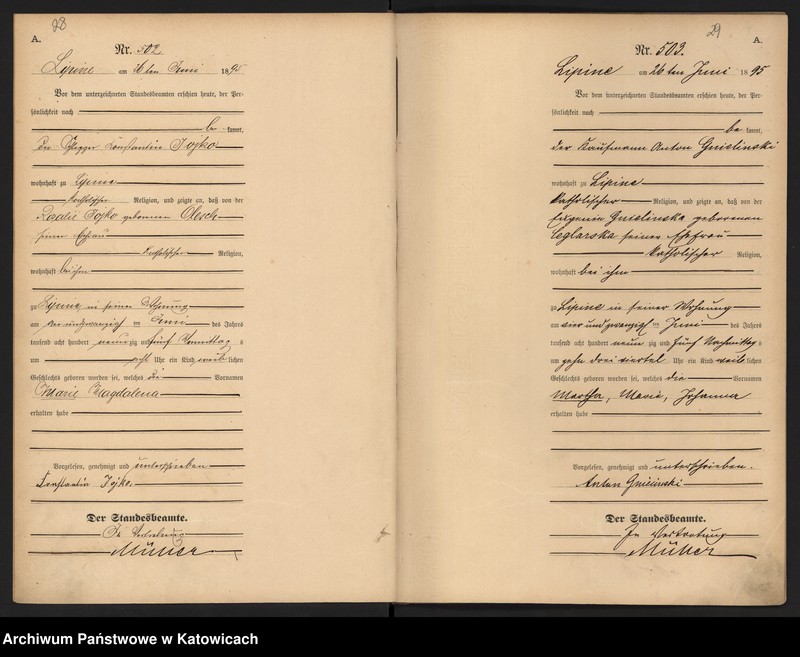 28
A.
Nr. 502.
Lipine am 26ten Juni 1895
Vor dem unterzeichneten Standesbeamten erschien heute, der Per-
sönlichkeit nach
be kannt,
der Constantin Jojko
wohnhaft zu Lipine
katholischer Religion, und zeigte an, daß von der
Rosalie Jojko geborenen Olesch
seiner Ehefrau
katholischer Religion,
wohnhaft bei ihm
zu Lipine in seiner Wohnung
am undzwanzigsten Juni des Jahres
tausend acht hundert neun zig und fünf Vormittag s
um acht Uhr ein Kind weib lichen
Geschlechts geboren worden sei, welches die Vornamen
Marie Magdalena
erhalten habe
Vorgelesen, genehmigt und unterschrieben
Constantin Jojko.
Der Standesbeamte.
In Vertretung
Müller
29
A.
Nr. 503.
Lipine am 26ten Juni 1895
Vor dem unterzeichneten Standesbeamten erschien heute, der Per-
sönlichkeit nach
be kannt,
der Kaufmann Anton Gnielinski
wohnhaft zu Lipine
katholischer Religion, und zeigte an, daß von der
Eugenie Gnielinska geborenen
Ceglarska seiner Ehefrau
katholischer Religion,
wohnhaft bei ihm
zu Lipine in seiner Wohnung
am vier und zwanzigsten Juni des Jahres
tausend acht hundert neun zig und fünf Nachmittag s
um zehn drei viertel Uhr ein Kind weib lichen
Geschlechts geboren worden sei, welches die Vornamen
Martha, Marie, Johanna
erhalten habe
Vorgelesen, genehmigt und unterschrieben.
Anton Gnielinski
Der Standesbeamte.
In Vertretung
Müller
Archiwum Państwowe w Katowicach